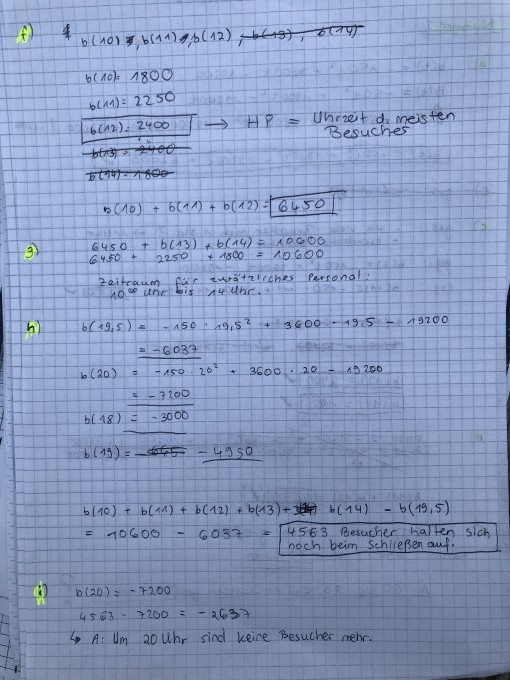 f) b(10), b(11), b(12), b(13), b(14)
b(10) = 1800
b(11) = 2250
b(12) = 2400 → HP = Uhrzeit d. meisten
Besucher
b(13) = 2400
b(14) = 1800
b(10) + b(11) + b(12) = 6450
g) 6450 + b(13) + b(14) = 10600
6450 + 2250 + 1800 = 10600
Zeitraum für zusätzliches Personal:
10⁰⁰ Uhr bis 14 Uhr.
h) b(19,5) = -150 · 19,5² + 3600 · 19,5 - 19200
= -6037
b(20) = -150 · 20² + 3600 · 20 - 19200
= -7200
b(18) = -3000
b(19) = -4950
b(10) + b(11) + b(12) + b(13) + b(14) - b(19,5)
= 10600 - 6037 = 4563 Besucher halten sich
noch beim Schließen auf.
i) b(20) = -7200
4563 - 7200 = -2637
↳ A: Um 20 Uhr sind keine Besucher mehr.